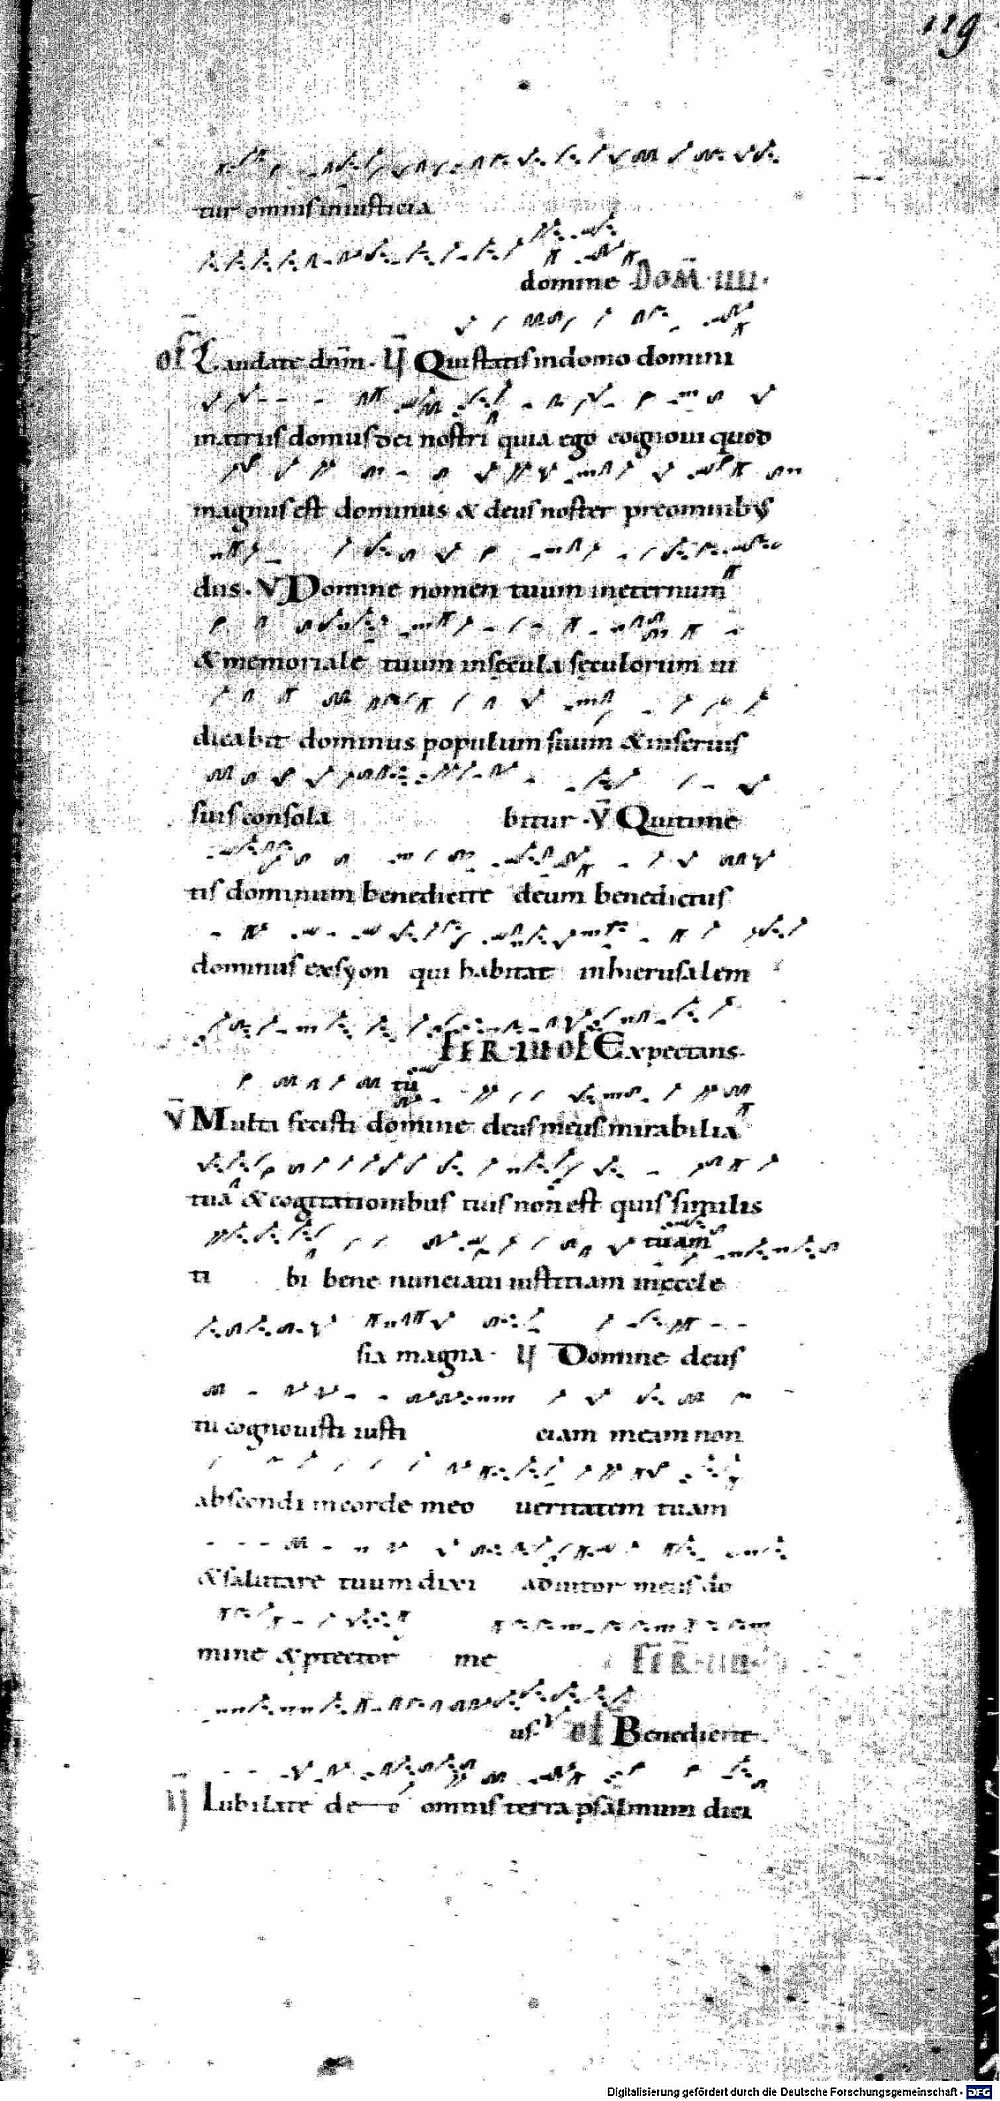 119
tur omnis iniusticia
domine DOM̄·IIII·
OF Laudate dn̄m· V̄ Qui statis in domo domini
in atriis domus dei nostri quia ego cognoui quod
magnus est dominus & deus noster pre omnibus
diis· V Domine nomen tuum in eternum
& memoriale tuum in secula seculorum iu
dicabit dominus populum suum & in seruis
suis consola bitur· V̄ Qui time
tis dominum benedicite deum benedictus
dominus ex syon qui habitat in hierusalem
FER·III OF Expectans·
tu
V̄ Multa fecisti domine deus meus mirabilia
tua & cogitationibus tuis non est quis similis
tuam
ti bi bene nunciaui iustitiam in eccle
sia magna· V Domine deus
tu cognouisti iusti ciam meam non
abscondi in corde meo ueritatem tuam
& salutare tuum dixi adiutor meus do
mine & ptector me
FER·IIII·
us OF Benedicite·
V̄ Iubilate de o omnis terra psalmum dici
Digitalisierung gefördert durch die Deutsche Forschungsgemeinschaft - DFG